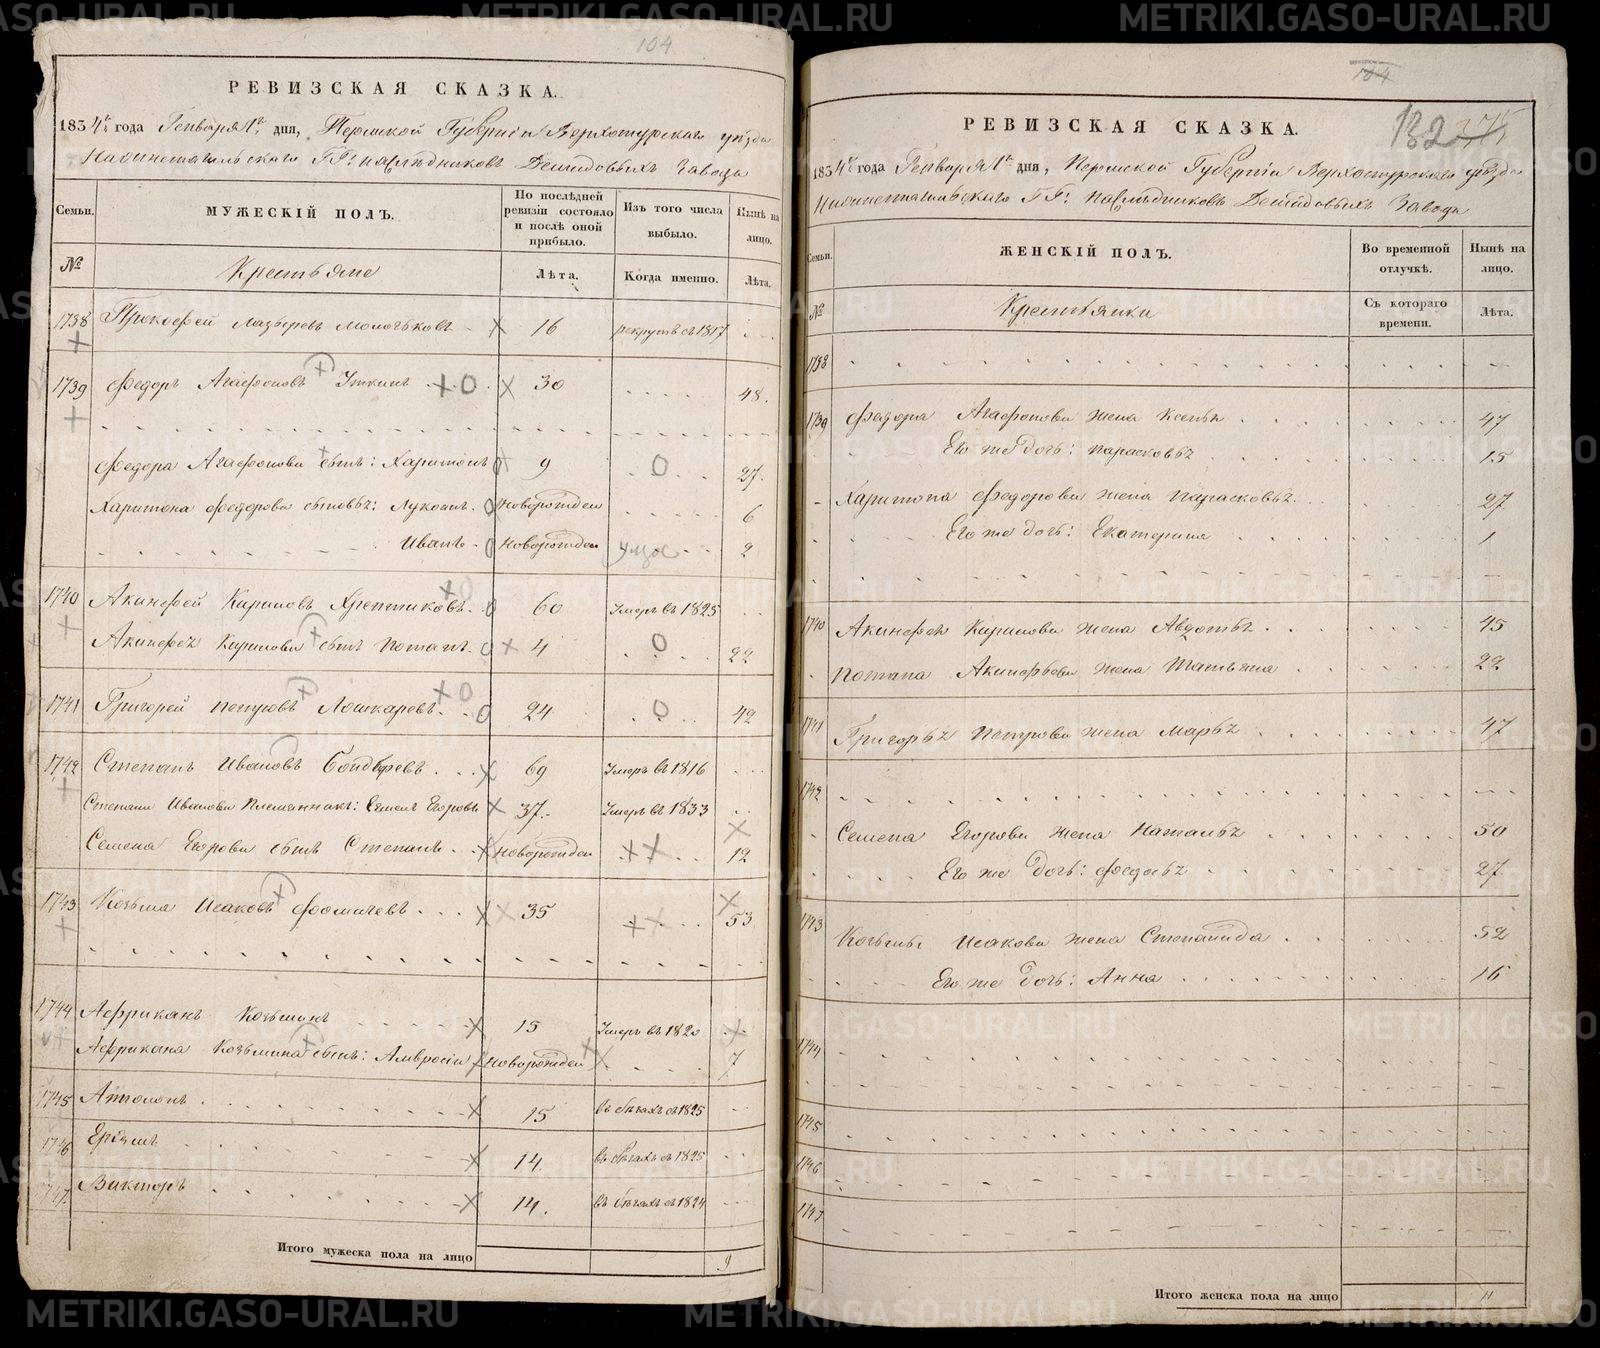 104
РЕВИЗСКАЯ СКАЗКА.
1834го года Генваря 1го дня, Пермской Губернiи Верхотурскаго уѣзда
ГГ: наслѣдниковъ Демидовыхъ Завода
Семьи. МУЖЕСКIЙ ПОЛЪ. По послѣдней ревизiи состояло и послѣ оной прибыло. Изъ того числа выбыло. Нынѣ на лицо.
№ Крестьяне Лѣта. Когда именно. Лѣта.
1738 Прокофей Лазаревъ Молочковъ 16 рекрутъ съ 1817
1739 Федоръ Агафоновъ Уткинъ 30 48.
Федора Агафонова сынъ: Харитонъ 9 27.
Харитона Федорова сыновья: Луконъ Новорожден 6
Иванъ Новорожден 2
1740 Акинфей Кириловъ 60 Умеръ въ 1825
Акинфея Кирилова сынъ Потапъ 4 22
1741 Григорей Петровъ Лошкаревъ 24 42
1742 Степанъ Ивановъ Бондыревъ 69 Умеръ въ 1816
Степана Иванова Племянникъ: Семенъ Егоровъ 37 Умеръ въ 1833
Семена Егорова сынъ Степанъ Новорожден 12
1743 Козьма Исаковъ Фомичевъ 35 53
1744 Африканъ Козьминъ 15 Умеръ въ 1820
Африкана Козьмина сынъ: Амвросiй Новорожден 7
1745 Антонъ 15 въ бѣгахъ съ 1825
1746 14 въ бѣгахъ съ 1825
1747 Викторъ 14. въ бѣгахъ съ 1824
Итого мужеска пола на лицо 9
104
132
РЕВИЗСКАЯ СКАЗКА.
1834го года Генваря 1го дня, Пермской Губернiи Верхотурскаго уѣзда
ГГ: наслѣдниковъ Демидовыхъ Завода
Семьи. ЖЕНСКIЙ ПОЛЪ. Во временной отлучкѣ. Нынѣ на лицо.
№ Крестьянки Съ котораго времени. Лѣта.
1738
1739 Федора Агафонова жена Ксенья 47
Его же дочь: Парасковья 15
Харитона Федорова жена Парасковья 27
Его же дочь: Екатерина 1
1740 Акинфея Кирилова жена Авдотья 45
Потапа Акинфьева жена Татьяна 22
1741 Григорья Петрова жена Марья 47
1742
Семена Егорова жена Наталья 50
Его же дочь: Федосья 27
1743 Козьмы Исакова жена Степанида 52
Его же дочь: Анна 16
1744
1745
1746
1747
Итого женска пола на лицо 11
METRIKI.GASO-URAL.RU